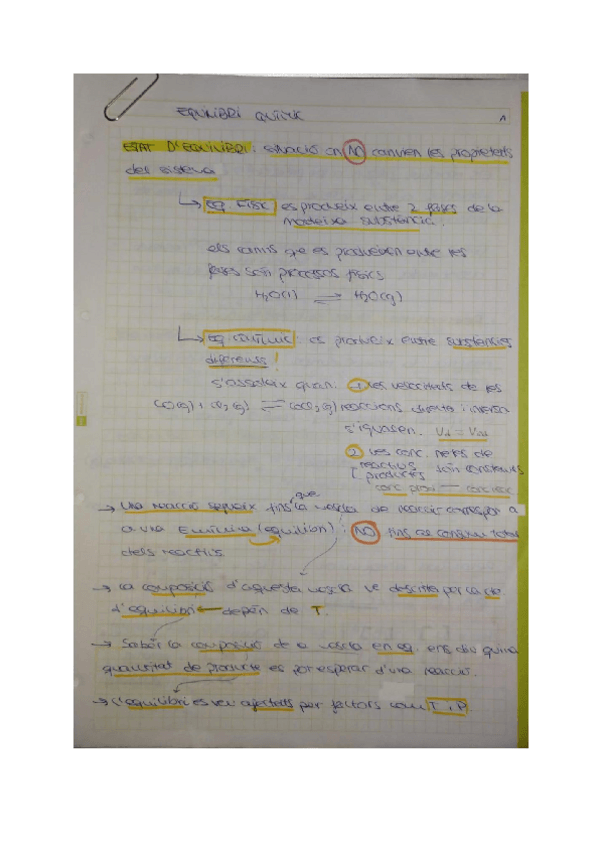 EQUILIBRI QUÍMIC 1
ESTAT D'EQUILIBRI: situació on NO canvien les propietats
del sistema
↳ eq. FÍSIC es produeix entre 2 fases de la
mateixa substància.
els canvis que es produeixen entre les
fases són processos físics
H₂O(l) ⇌ H₂O(g)
↳ eq. químic: es produeix entre substàncies
diferents!
s'assoleix quan: 1 les velocitats de les
CO(g) + Cl₂(g) ⇌ COCl₂(g) reaccions directa i inversa
s'igualen.
2 Les conc. netes de
reactius
productes són constants
→ Una reacció segueix fins que la mescla de reacció correspon a
a una E mínima (equilibri): NO fins es consumir tots
dels reactius
→ La composició d'aquesta mescla ve descrita per la cte
d'equilibri ← depèn de T.
→ Saber la composició de la mescla en eq. ens diu quina
quantitat de producte es pot esperar d'una reacció.
→ L'equilibri es veu afectats per factors com T i P.